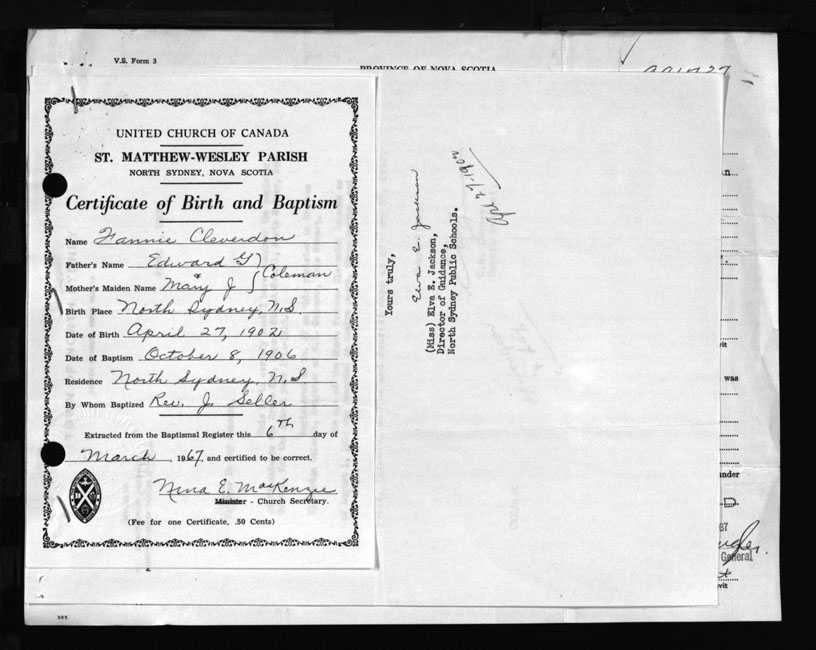 V.S. Form 3
PROVINCE OF NOVA SCOTIA
UNITED CHURCH OF CANADA
ST. MATTHEW-WESLEY PARISH
NORTH SYDNEY, NOVA SCOTIA
Certificate of Birth and Baptism
Name Fannie Cleverdon
Father's Name Edward G
& Coleman
Mother's Maiden Name Mary J
Birth Place North Sydney, N.S.
Date of Birth April 27, 1902
Date of Baptism October 8, 1906
Residence North Sydney, N.S.
By Whom Baptized Rev. J. Seller
Extracted from the Baptismal Register this 6TH day of
March, 1967, and certified to be correct.
Nina E. MacKenzie
Minister - Church Secretary.
(Fee for one Certificate, .50 Cents)
Yours truly,
Elva E. Jackson
(Miss) Elva E. Jackson,
Director of Guidance,
North Sydney Public Schools.
Apl 27-1902
was
under
D
67
General